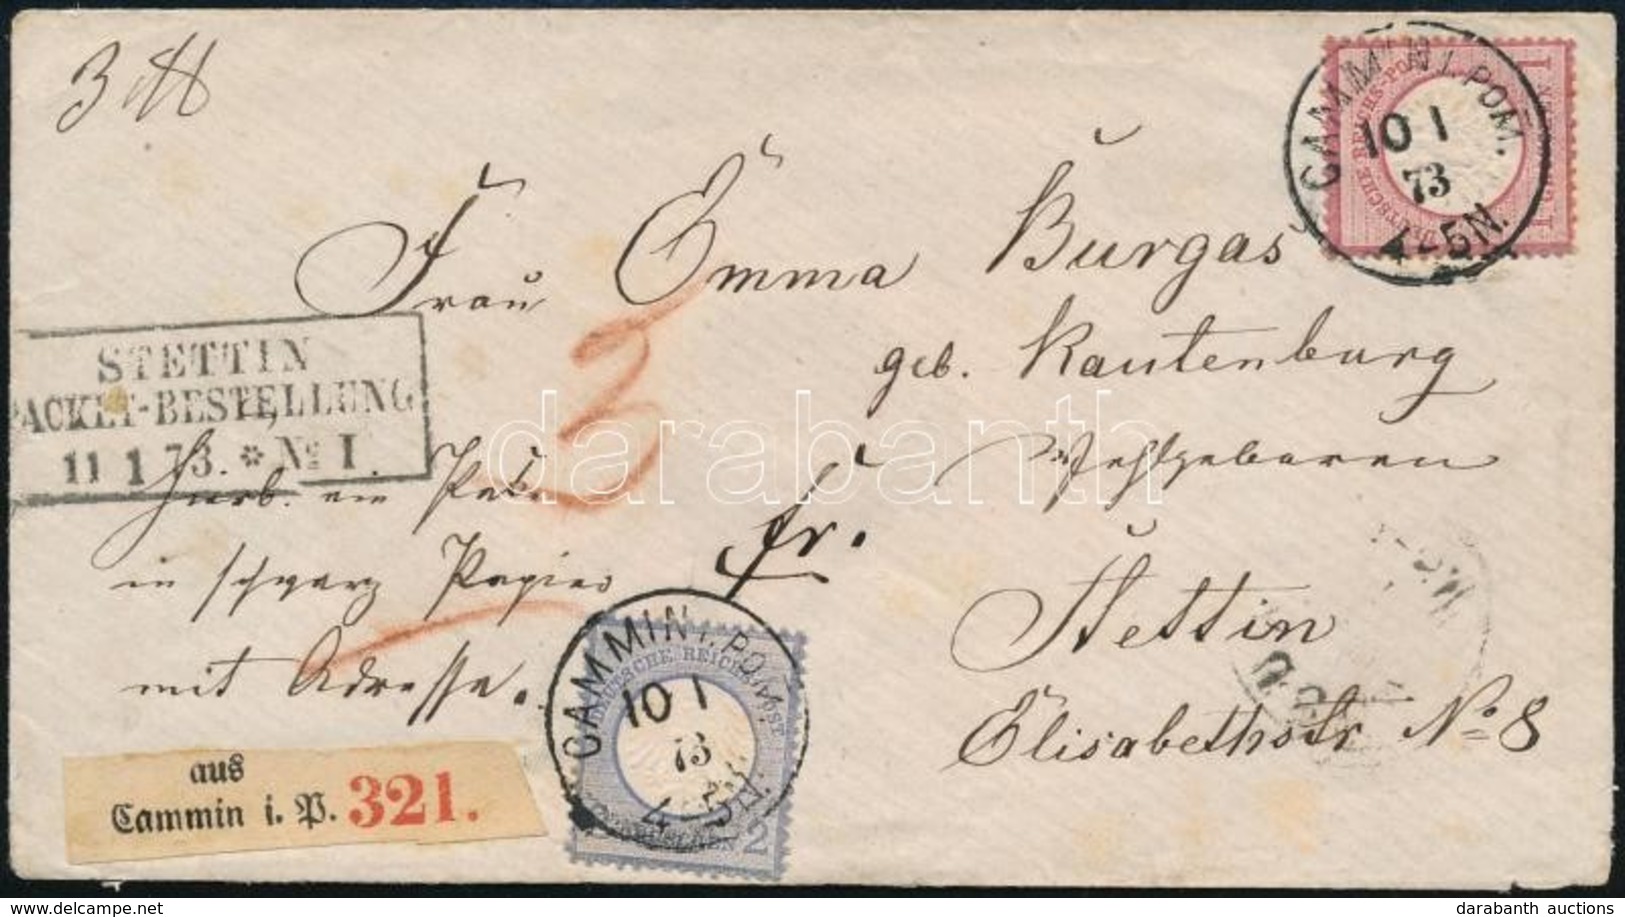 3 ℔
CAMMIN I. POM.
10 1
73
4-5N.
1
DEUTSCHE REICHS-POST
Frau Emma Burgas
geb. Kautenburg
Wohlgeboren
Stettin
Elisabethstr No 8
STETTIN
PACKET-BESTELLUNG
11 1 73. * No I.
3
hierb. ein Pak.
in schwarz Papier
mit Adresse.
fr.
CAMMIN I. POM.
10 1
73
4-5N.
DEUTSCHE REICHS-POST
2
aus
Cammin i. P. 321.
darabanth
delcampe.net
darabanth auctions